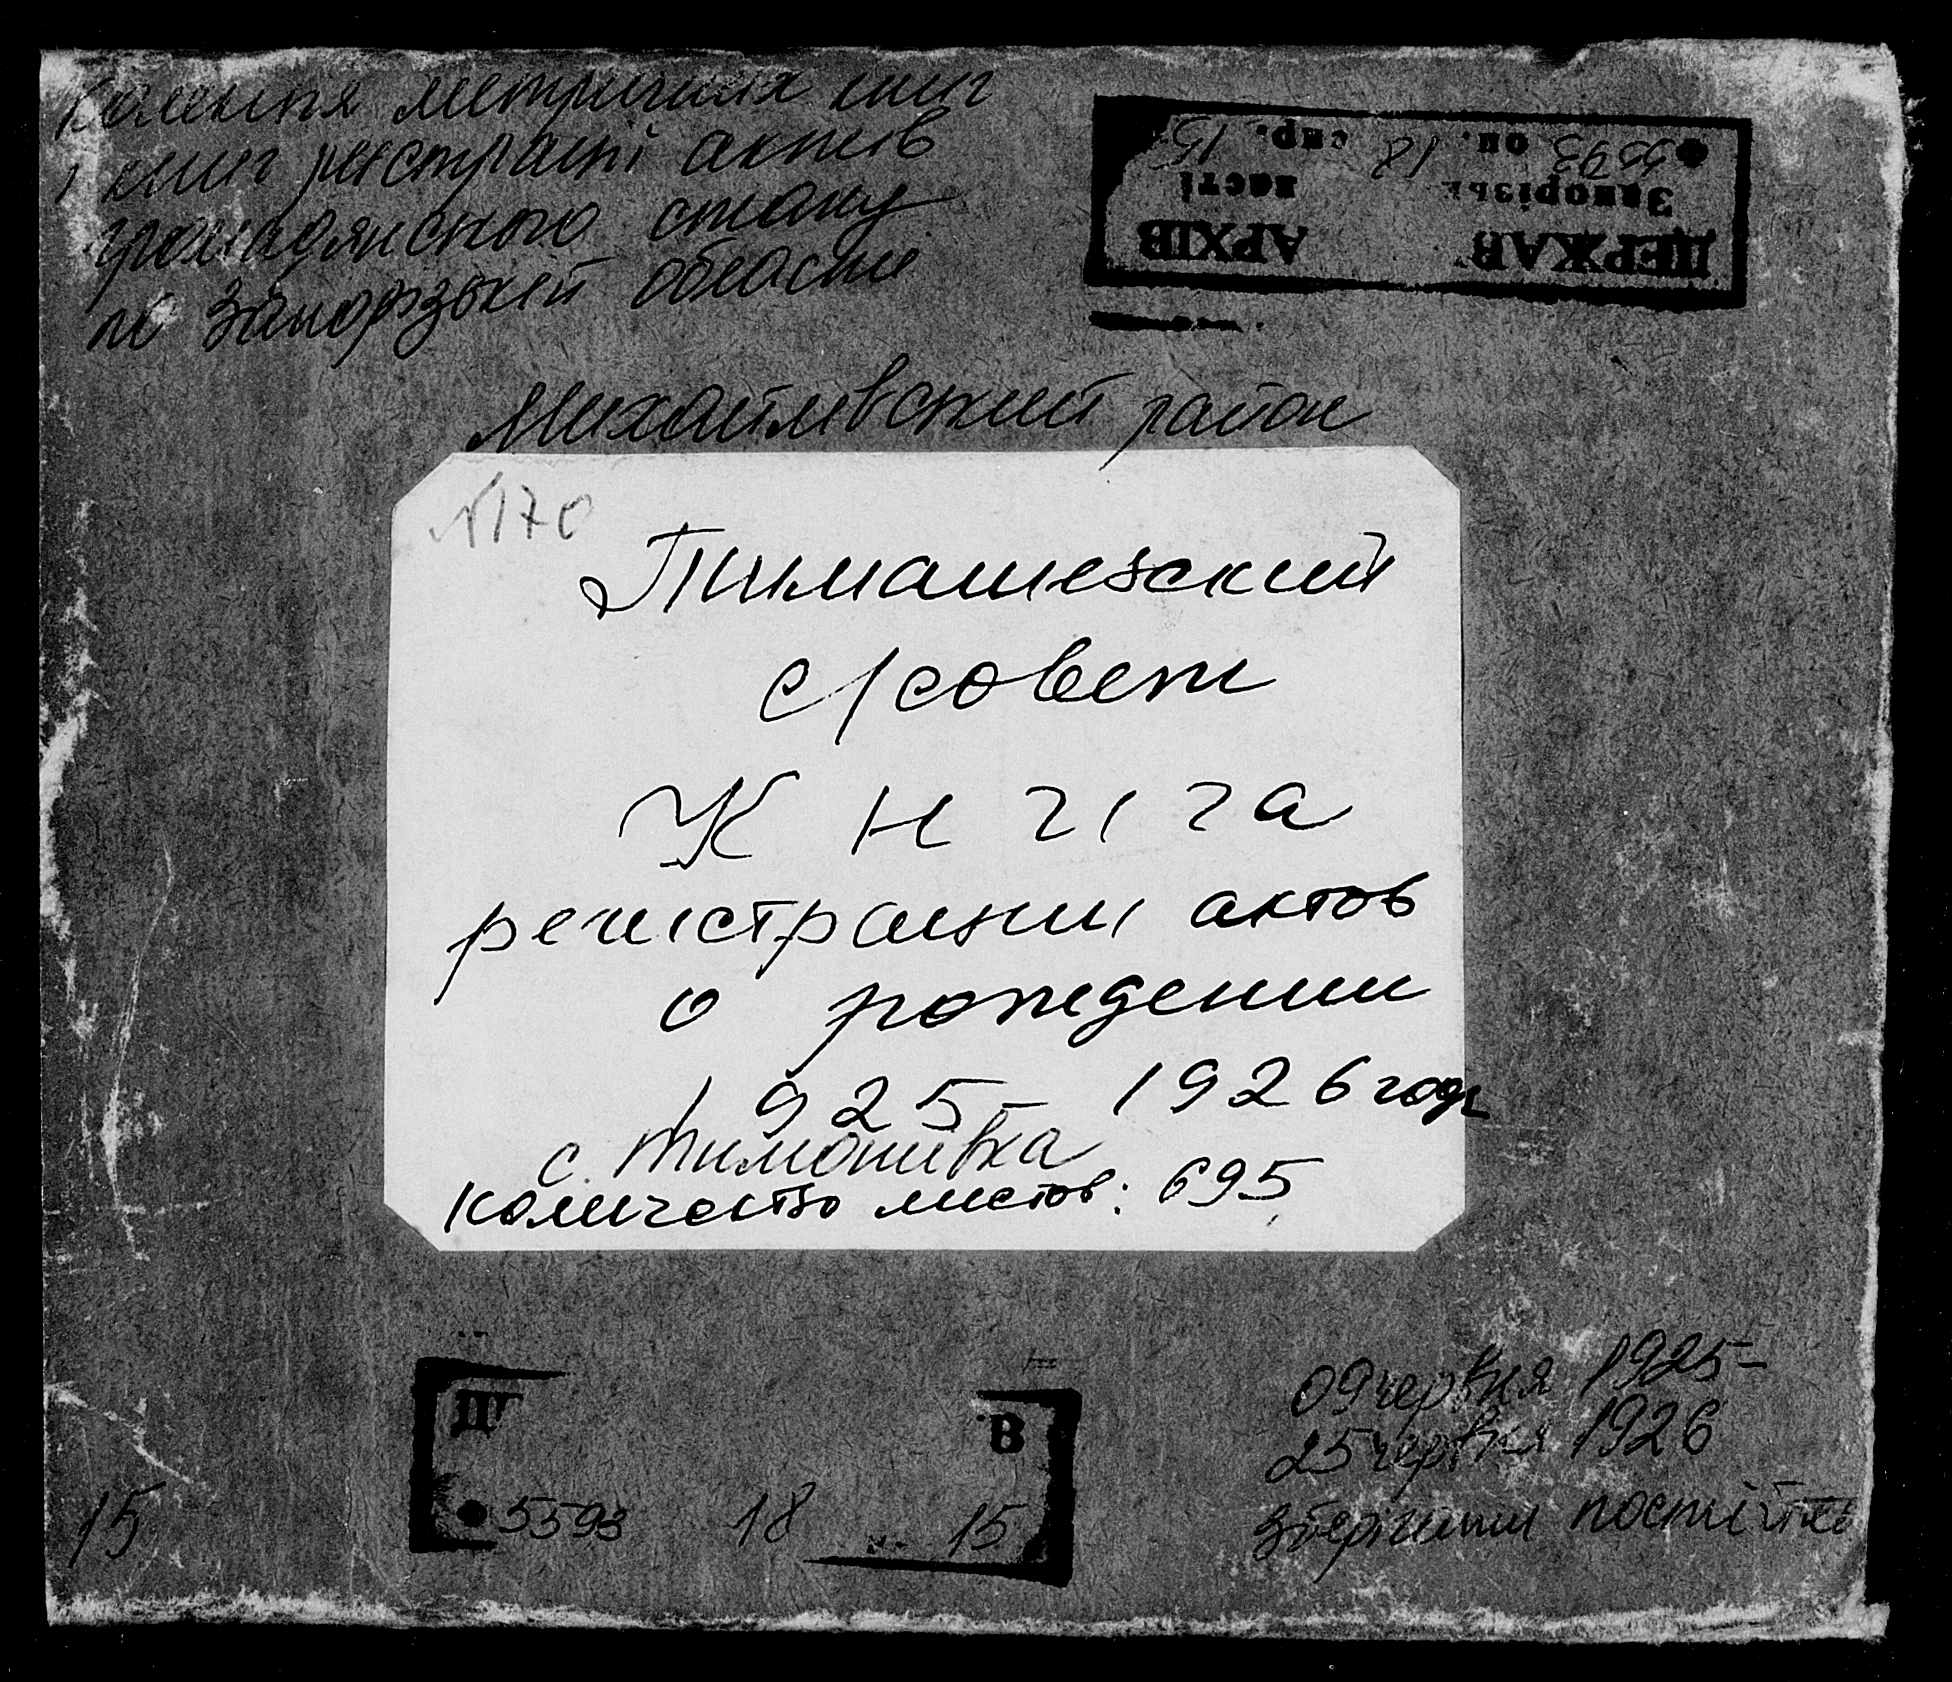 Колекція метричних книг
і книг реєстрації актів
громадянського стану
по Запорізькій області
ДЕРЖАВ АРХІВ
Запорізьк ласті
Ф 5593 оп. 18 спр. 15
Михайлівський район
№170
Тимашевский
с/совет
Книга
регистрации актов
о рождении
1925- 1926 годы
с. Тимошівка
количество листов: 695
Д В
5593 18 15
09 червня 1925-
25 червня 1926
зберігати постійно
15